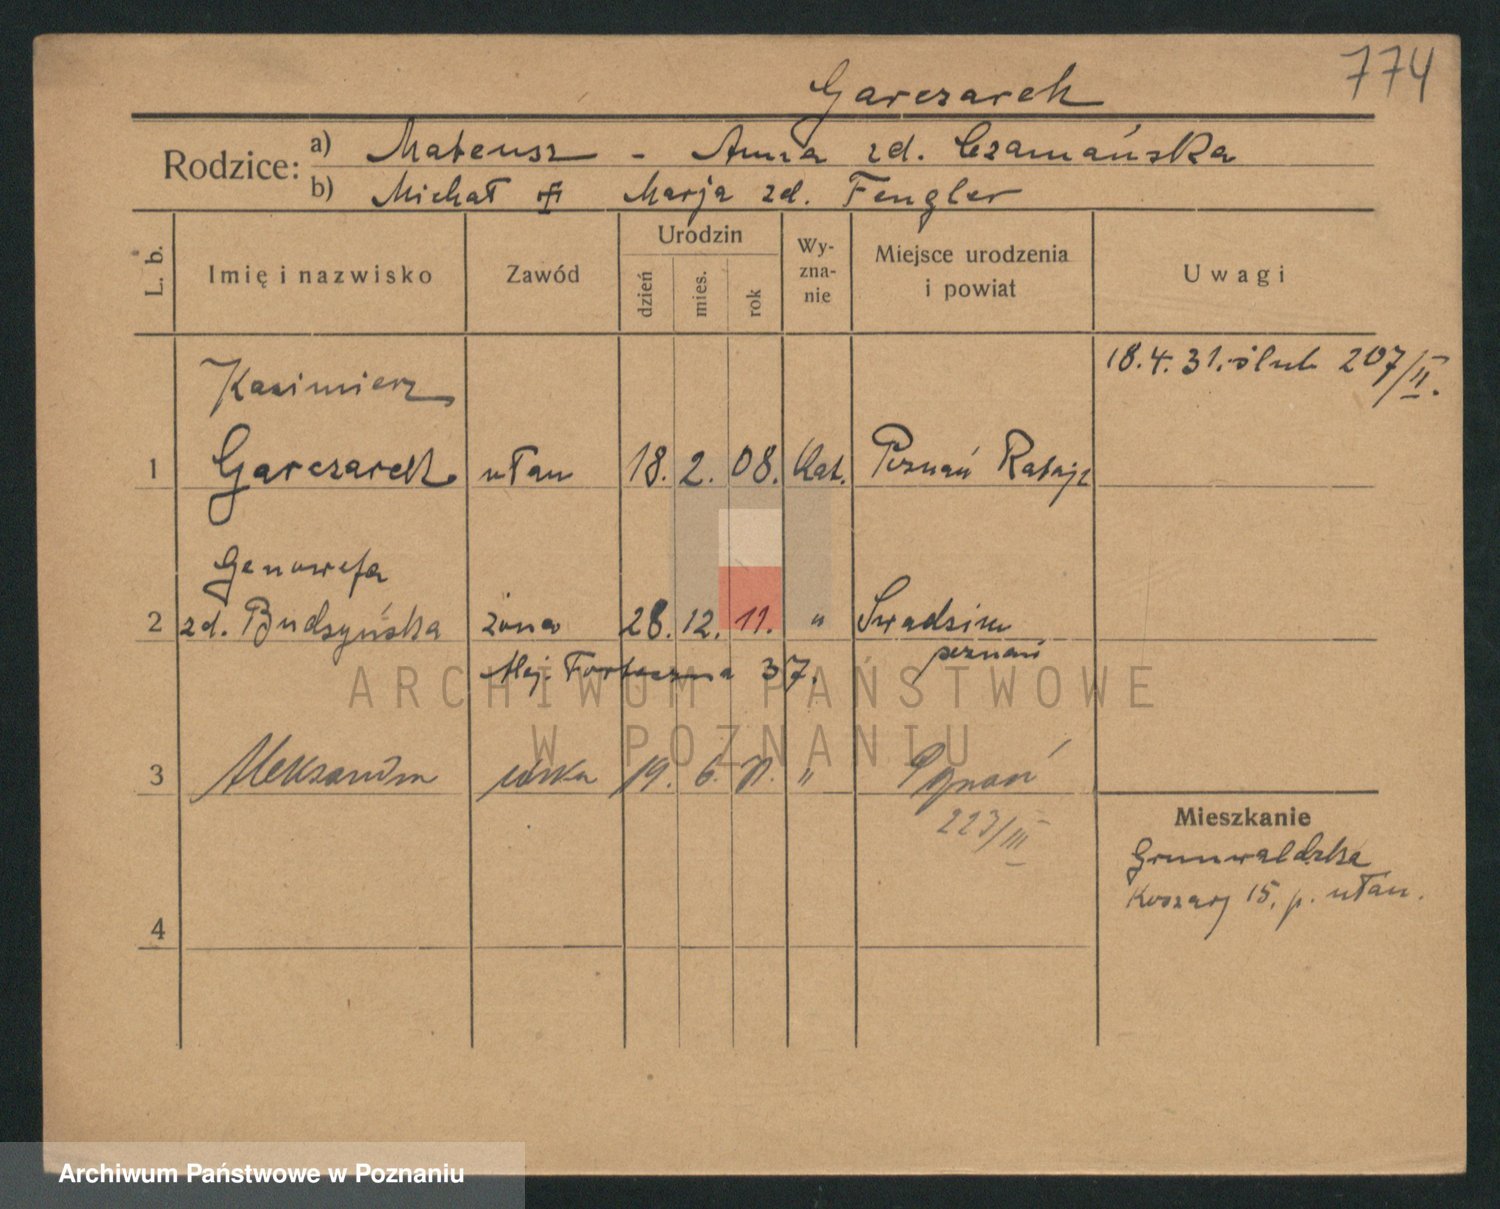 774
Garczarek
Rodzice: a) Mateusz - Anna zd. Czamańska
b) Michał Marja zd. Fengler
L. b. Imię i nazwisko Zawód Urodzin dzień mies. rok Wy-zna-nie Miejsce urodzenia i powiat Uwagi
18.4.31. ślub 207/II.
Kazimierz
1 Garczarek ułan 18. 2. 08. Kat. Poznań Rataje
Genowefa
2 zd. Budzyńska żona 28. 12. 11. " Swadzim
poznań
Alej. Forteczna 37.
ARCHIWUM PAŃSTWOWE
W POZNANIU
3 Aleksandra córka 19. 6. " Poznań
223/III
Mieszkanie
Grunwaldzka
Koszary 15. p. ułan.
4
Archiwum Państwowe w Poznaniu